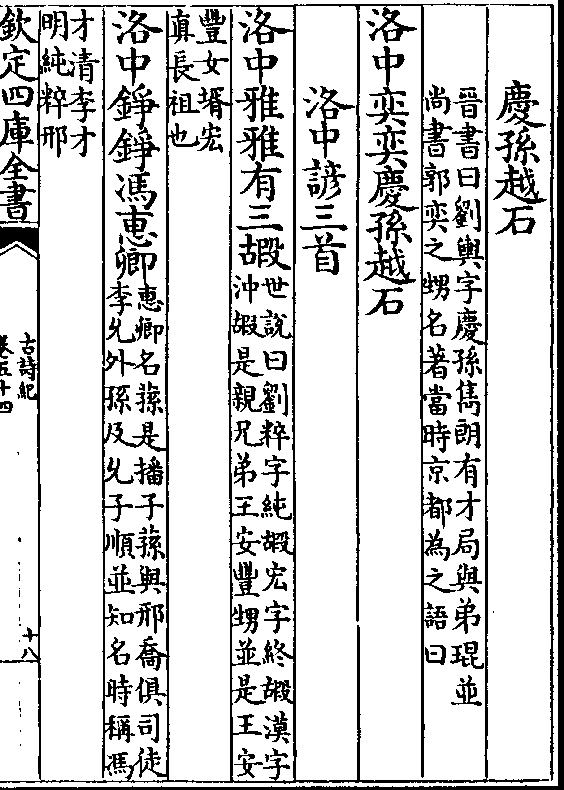 慶孫越石
晉書曰劉輿字慶孫雋朗有才局與弟琨並
尚書郭奕之甥名著當時京都為之語曰
洛中奕奕慶孫越石
洛中諺三首
洛中雅雅有三嘏
世說曰劉粹字純嘏宏字終嘏漠字
沖嘏是親兄弟王安豐甥並是王安
豐女壻宏
真長祖也
洛中錚錚馮惠卿
惠卿名蓀是播子蓀與邢喬俱司徒
李允外孫及允子順並知名時稱馮
才清李才
明純粹邢
欽定四庫全書
古詩紀
卷五十四
十八